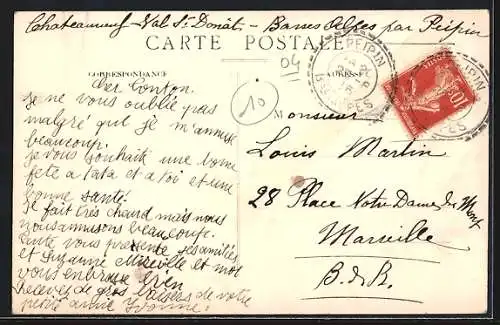 Chateauneuf-Val St Donat - Basses Alpes par Peipin
CARTE POSTALE
CORRESPONDANCE
ADRESSE
04
10
PEIPIN
Cer Tonton.
Je ne vous oublie pas
malgré qut je m'amuse
beaucoup.
Je vous souhaite une bonne
fete a tata et a toi et une
bonne santé.
Il fait très chaud mais nous
nous amusons beaucoup.
Tante vous presente ses amitiés
et Suzanne Mireille et moi
vous embrasse bien
Recevez de gros baisers de votre
petite amie Yvonne.
Monsieur
Louis Martin
28 Place Notre Dame du Mont
Marseille
B. d. R.
10c